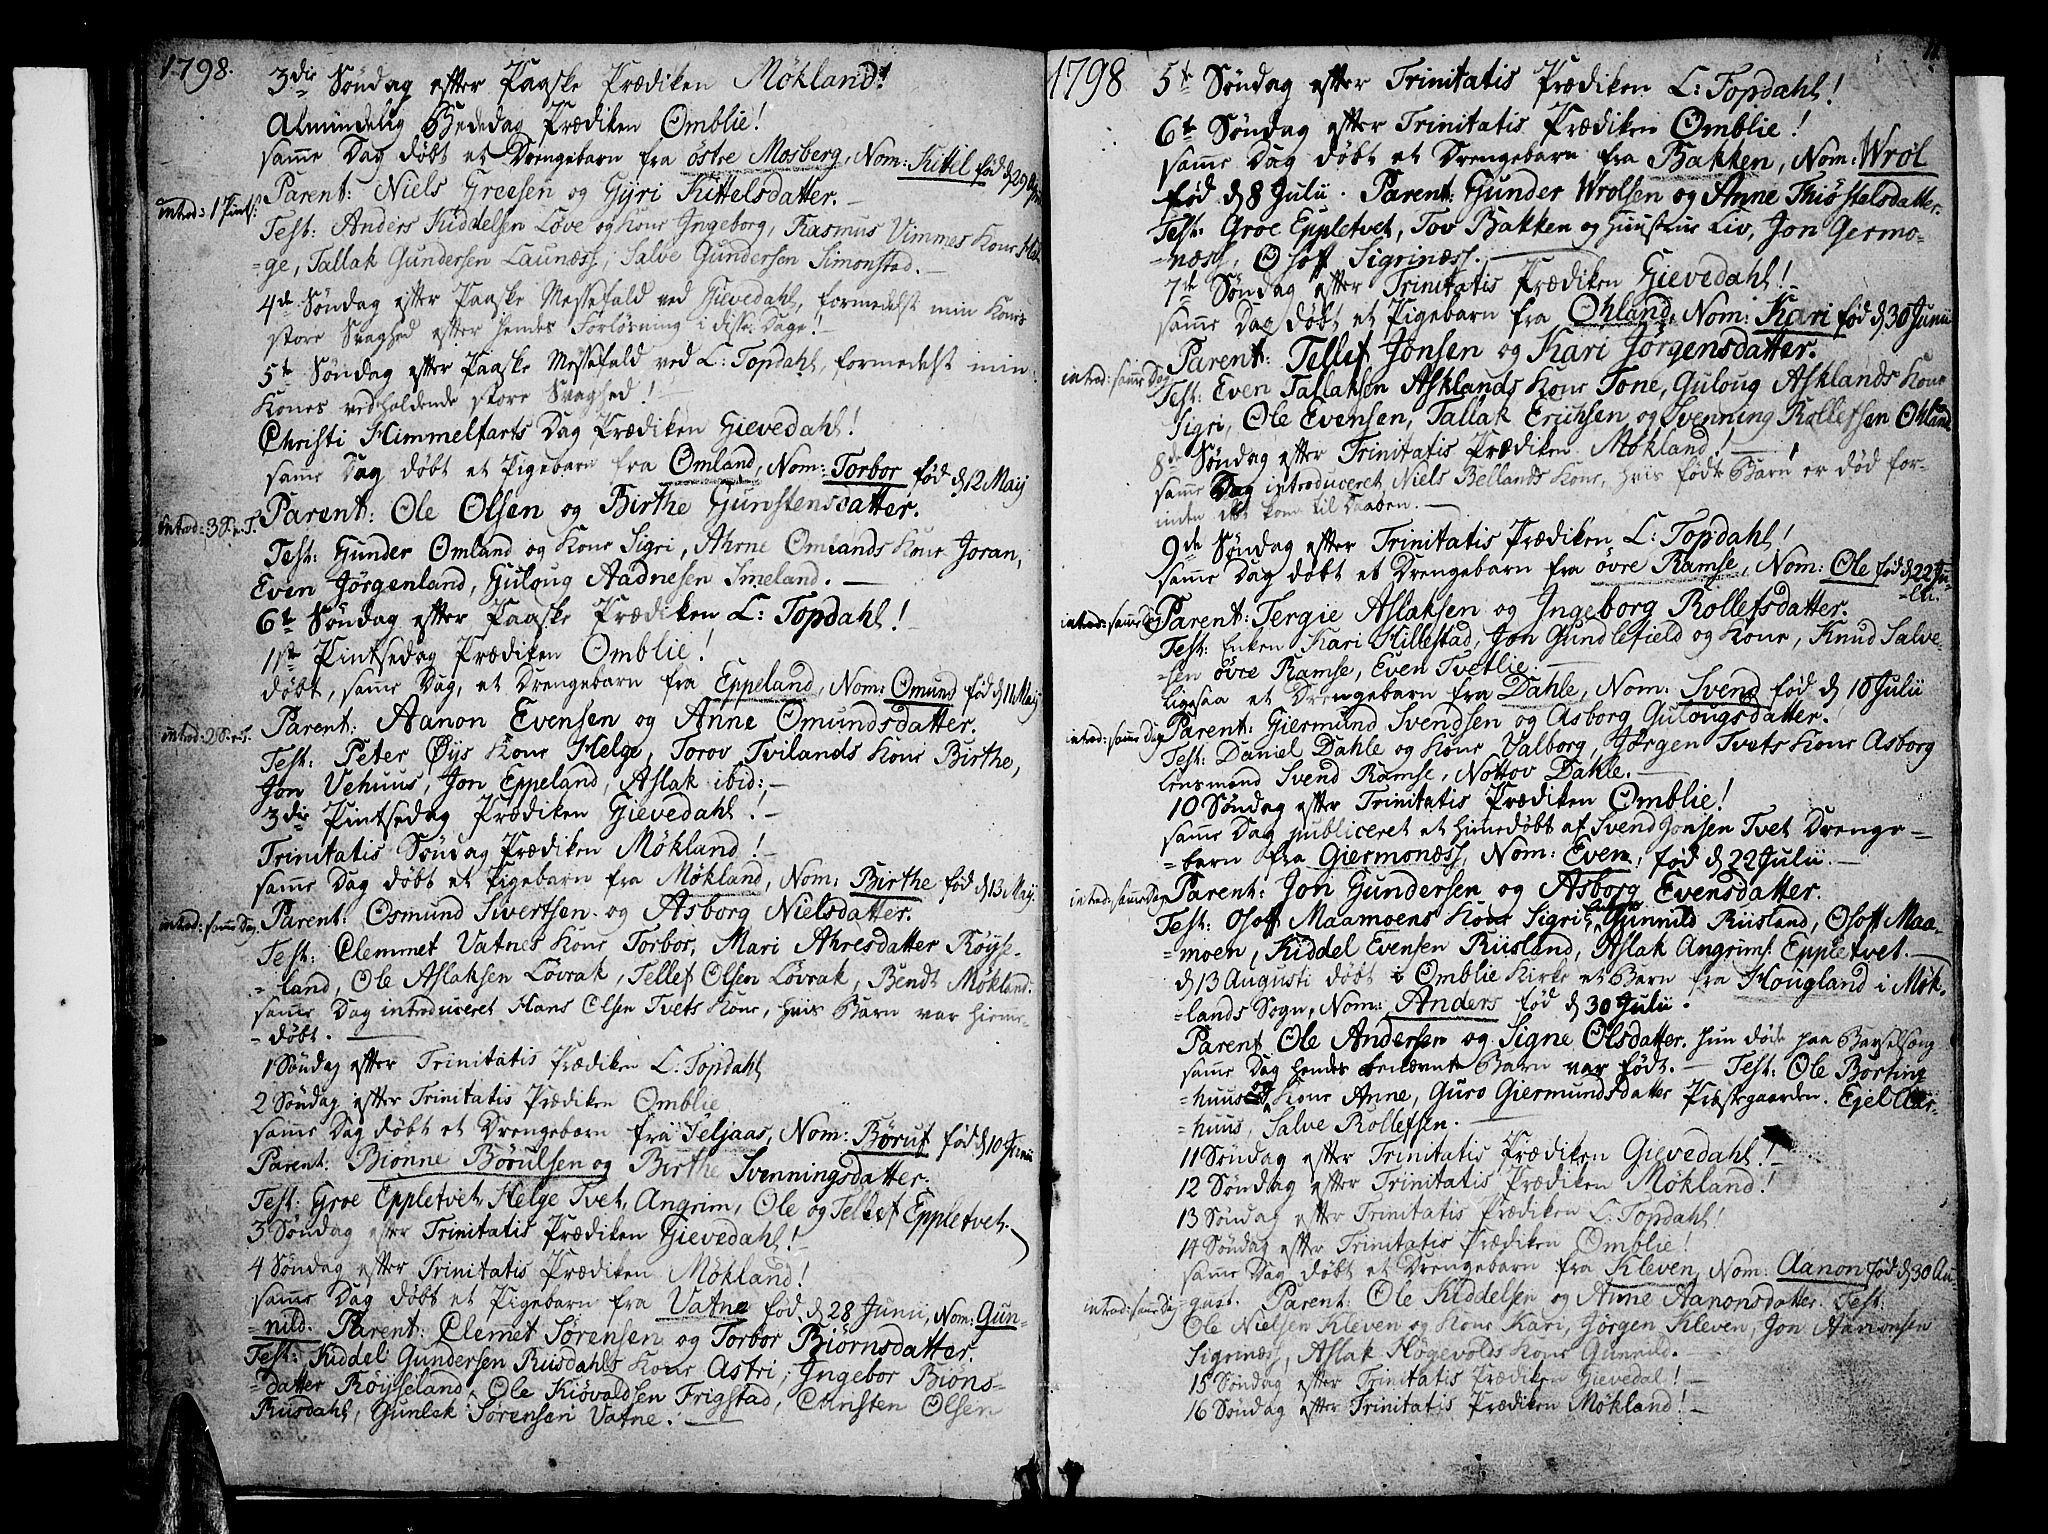 1798.
3die Søndag efter Paaske Prædiken Møkland!
Almindelig Bededag Prædiken Omblie!
samme Dag døbt et Drengebarn fra østre Mosberg, Nom: Kittil fød d 29 Apr
introd: 1 Pints:
Parent: Niels Greesen og Gyri Kittelsdatter.
Test: Anders Kiddelsen Løve og Kone Ingeborg, Rasmus Vimmes Kone Hel-
=ge, Tallak Gundersen Launæss, Salve Gundersen Simonstad.
4de Søndag efter Paaske Messefald ved Gievedahl, formedelst min Kones
store Svaghed efter hendes Forløsning i disse Dage!
5te Søndag efter Paaske Messefald ved L: Topdahl, formedelst min
Kones vedholdende store Svaghed!
Christi Himmelfarts Dag Prædiken Gievedahl!
samme Dag døbt et Pigebarn fra Omland, Nom: Torbor fød d 12 Maij
introd: 3 S. e. T.
Parent: Ole Olsen og Birthe Gunstensdatter.
Test: Gunder Omland og Kone Sigri, Ahrne Omlands Kone Joran,
Even Jørgenland, Guloug Aadnesen Smeland.
6te Søndag efter Paaske Prædiken L: Topdahl!
1ste Pintsedag Prædiken Omblie!
døbt, samme Dag, et Drengebarn fra Eppeland, Nom: Omund fød d 11 Maij
introd: 2 S. e. T.
Parent: Aanon Evensen og Anne Omundsdatter.
Test: Peter Øys Kone Helge, Torov Tvilands Kone Birthe,
Jon Vehuus, Jon Eppeland, Aslak ibid:
3die Pintsedag Prædiken Gievedahl!
Trinitatis Søndag Prædiken Møkland!
samme Dag døbt et Pigebarn fra Møkland, Nom: Birthe fød d 13 Maij.
introd: samme Dag
Parent: Osmund Sivertsen og Asborg Nielsdatter.
Test: Clemmet Vatnes Kone Torbor, Mari Ahresdatter Røyse-
=land, Ole Aslaksen Løvrak, Tellef Olsen Løvrak, Bendt Møkland.
samme Dag introduceret Hans Olsen Tvets Kone, hvis Barn var hieme-
=døbt.
1 Søndag efter Trinitatis Prædiken L: Topdahl
2 Søndag efter Trinitatis Prædiken Omblie
samme Dag døbt et Drengebarn fra Seljaas, Nom: Børuf fød d 10 Junii
Parent: Biønne Børulsen og Birthe Svenningsdatter.
Test: Groe Eppletvet, Helge Tvet, Angrim, Ole og Tellef Eppletvet.
3 Søndag efter Trinitatis Prædiken Gievedahl!
4 Søndag efter Trinitatis Prædiken Møkland!
samme Dag døbt et Pigebarn fra Vatne fød d 28 Junii, Nom: Gun-
=nild. Parent: Clemet Sørensen og Torbor Biørnsdatter.
Test: Kiddel Gundersen Riisdahls Kone Astri, Ingebor Biøns-
=datter Røyseland, Ole Kiøvaldsen Frigstad, Christen Olsen
Riisdahl, Gunlak Sørensen Vatne.
1798
5te Søndag efter Trinitatis Prædiken L: Topdahl!
6te Søndag efter Trinitatis Prædiken Omblie!
samme Dag døbt et Drengebarn fra Bakken, Nom: Wrol
fød d 8 Julii. Parent: Gunder Wrolsen og Anne Thiøstelsdatter.
Test: Groe Eppletvet, Tov Bakken og Huustrue Liv, Jon Germo-
=næss, Osoff Sigrinæss.
7de Søndag efter Trinitatis Prædiken Gievedahl!
samme Dag døbt et Pigebarn fra Ohland, Nom: Kari fød d 30 Junii
introd: samme Dag
Parent: Tellef Jonsen og Kari Jørgensdatter.
Test: Even Tallaksen Asklands Kone Tone, Guloug Asklands Kone
Sigri, Ole Evensen, Tallak Erichsen og Svenning Rollefsen Ohland
8de Søndag efter Trinitatis Prædiken Møkland!
samme Dag introduceret Niels Bellands Kone, hvis fødte Barn er død for-
inden det kom til Daaben.
9de Søndag efter Trinitatis Prædiken L: Topdahl!
samme Dag døbt et Drengebarn fra øvre Ramse, Nom: Ole fød d 22 Ju-
=lii.
introd: samme Dag
Parent: Tergie Aslaksen og Ingeborg Rollefsdatter.
Test: Enken Kari Hillestad, Jon Gundlefield og Kone, Knud Salve-
=sen øvre Ramse, Even Tvetlie.
Ligesaa et Drengebarn fra Dahle, Nom: Svend fød d 10 Julii
introd: samme Dag
Parent: Giermund Svendsen og Asborg Gulougsdatter.
Test: Daniel Dahle og Kone Valborg, Jørgen Tvets Kone Asborg
Lensmand Svend Ramse, Nottov Dahle.
10 Søndag efter Trinitatis Prædiken Omblie!
samme Dag publiceret et himedøbt af Svend Jonsen Tvet Drenge-
=barn fra Giermonæss, Nom: Even, fød d 22 Julii.
introd: samme Dag
Parent: Jon Gundersen og Asborg Evensdatter.
Test: Osoff Maamoens Kone Sigri, Gunnild Riisland, Osoff Maa-
=moen, Kiddel Evensen Riisland, Aslak Angrims. Eppletvet.
d 13 Augusti døbt i Omblie Kirke et Barn fra Hougland i Møk-
=lands Sogn, Nom: Anders fød d 30 Julii.
Parent Ole Andersen og Signe Olsdatter. hun døde paa Barselseng
samme Dag hendes benævnte Barn var født. Test: Ole Borting
=huus og Kone Anne, Guro Giermundsdatter Præstegaarden. Ejel Aar-
=huus, Salve Rollefsen.
11 Søndag efter Trinitatis Prædiken Gievedahl!
12 Søndag efter Trinitatis Prædiken Møkland!
13 Søndag efter Trinitatis Prædiken L: Topdahl!
14 Søndag efter Trinitatis Prædiken Omblie!
samme Dag døbt et Drengebarn fra Kleven, Nom: Aanon fød d 30 Au
introd: samme Dag
gust. Parent: Ole Kiddelsen og Anne Aanonsdatter. Test:
Ole Nielsen Kleven og Kone Kari, Jørgen Kleven, Jon Aanonsen
Sigrinæss, Aslak Høgevolds Kone Gunnild.
15 Søndag efter Trinitatis Prædiken Gievedal!
16 Søndag efter Trinitatis Prædiken Møkland!